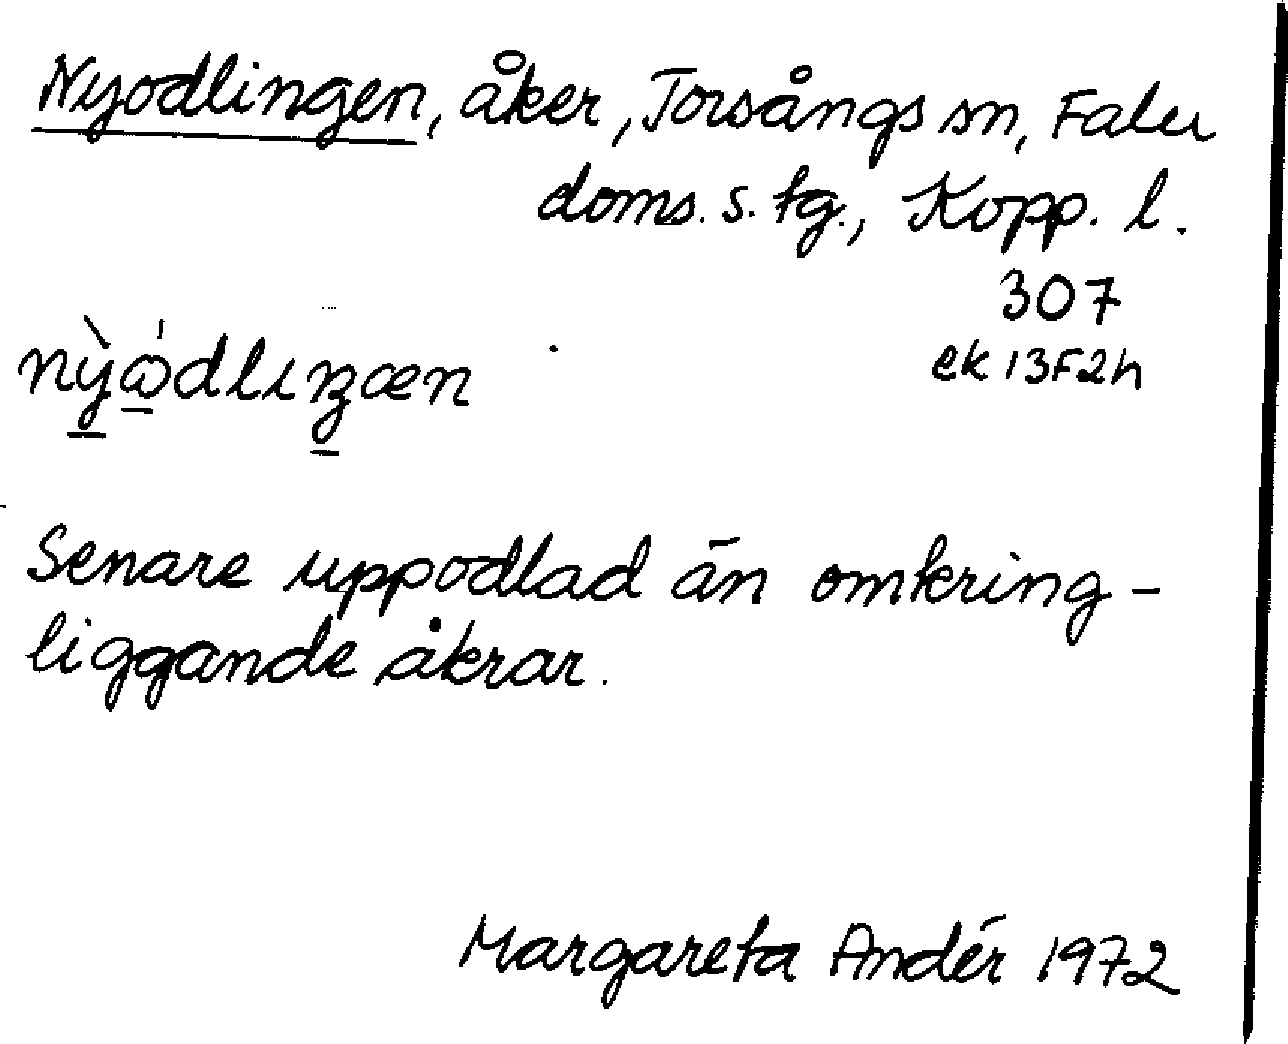 Nyodlingen, åker, Torsångs sn, Falu
doms. s. tg., Kopp. l.
307
ek 13F2h
Senare uppodlad än omkring-
liggande åkrar.
Margareta Andér 1972